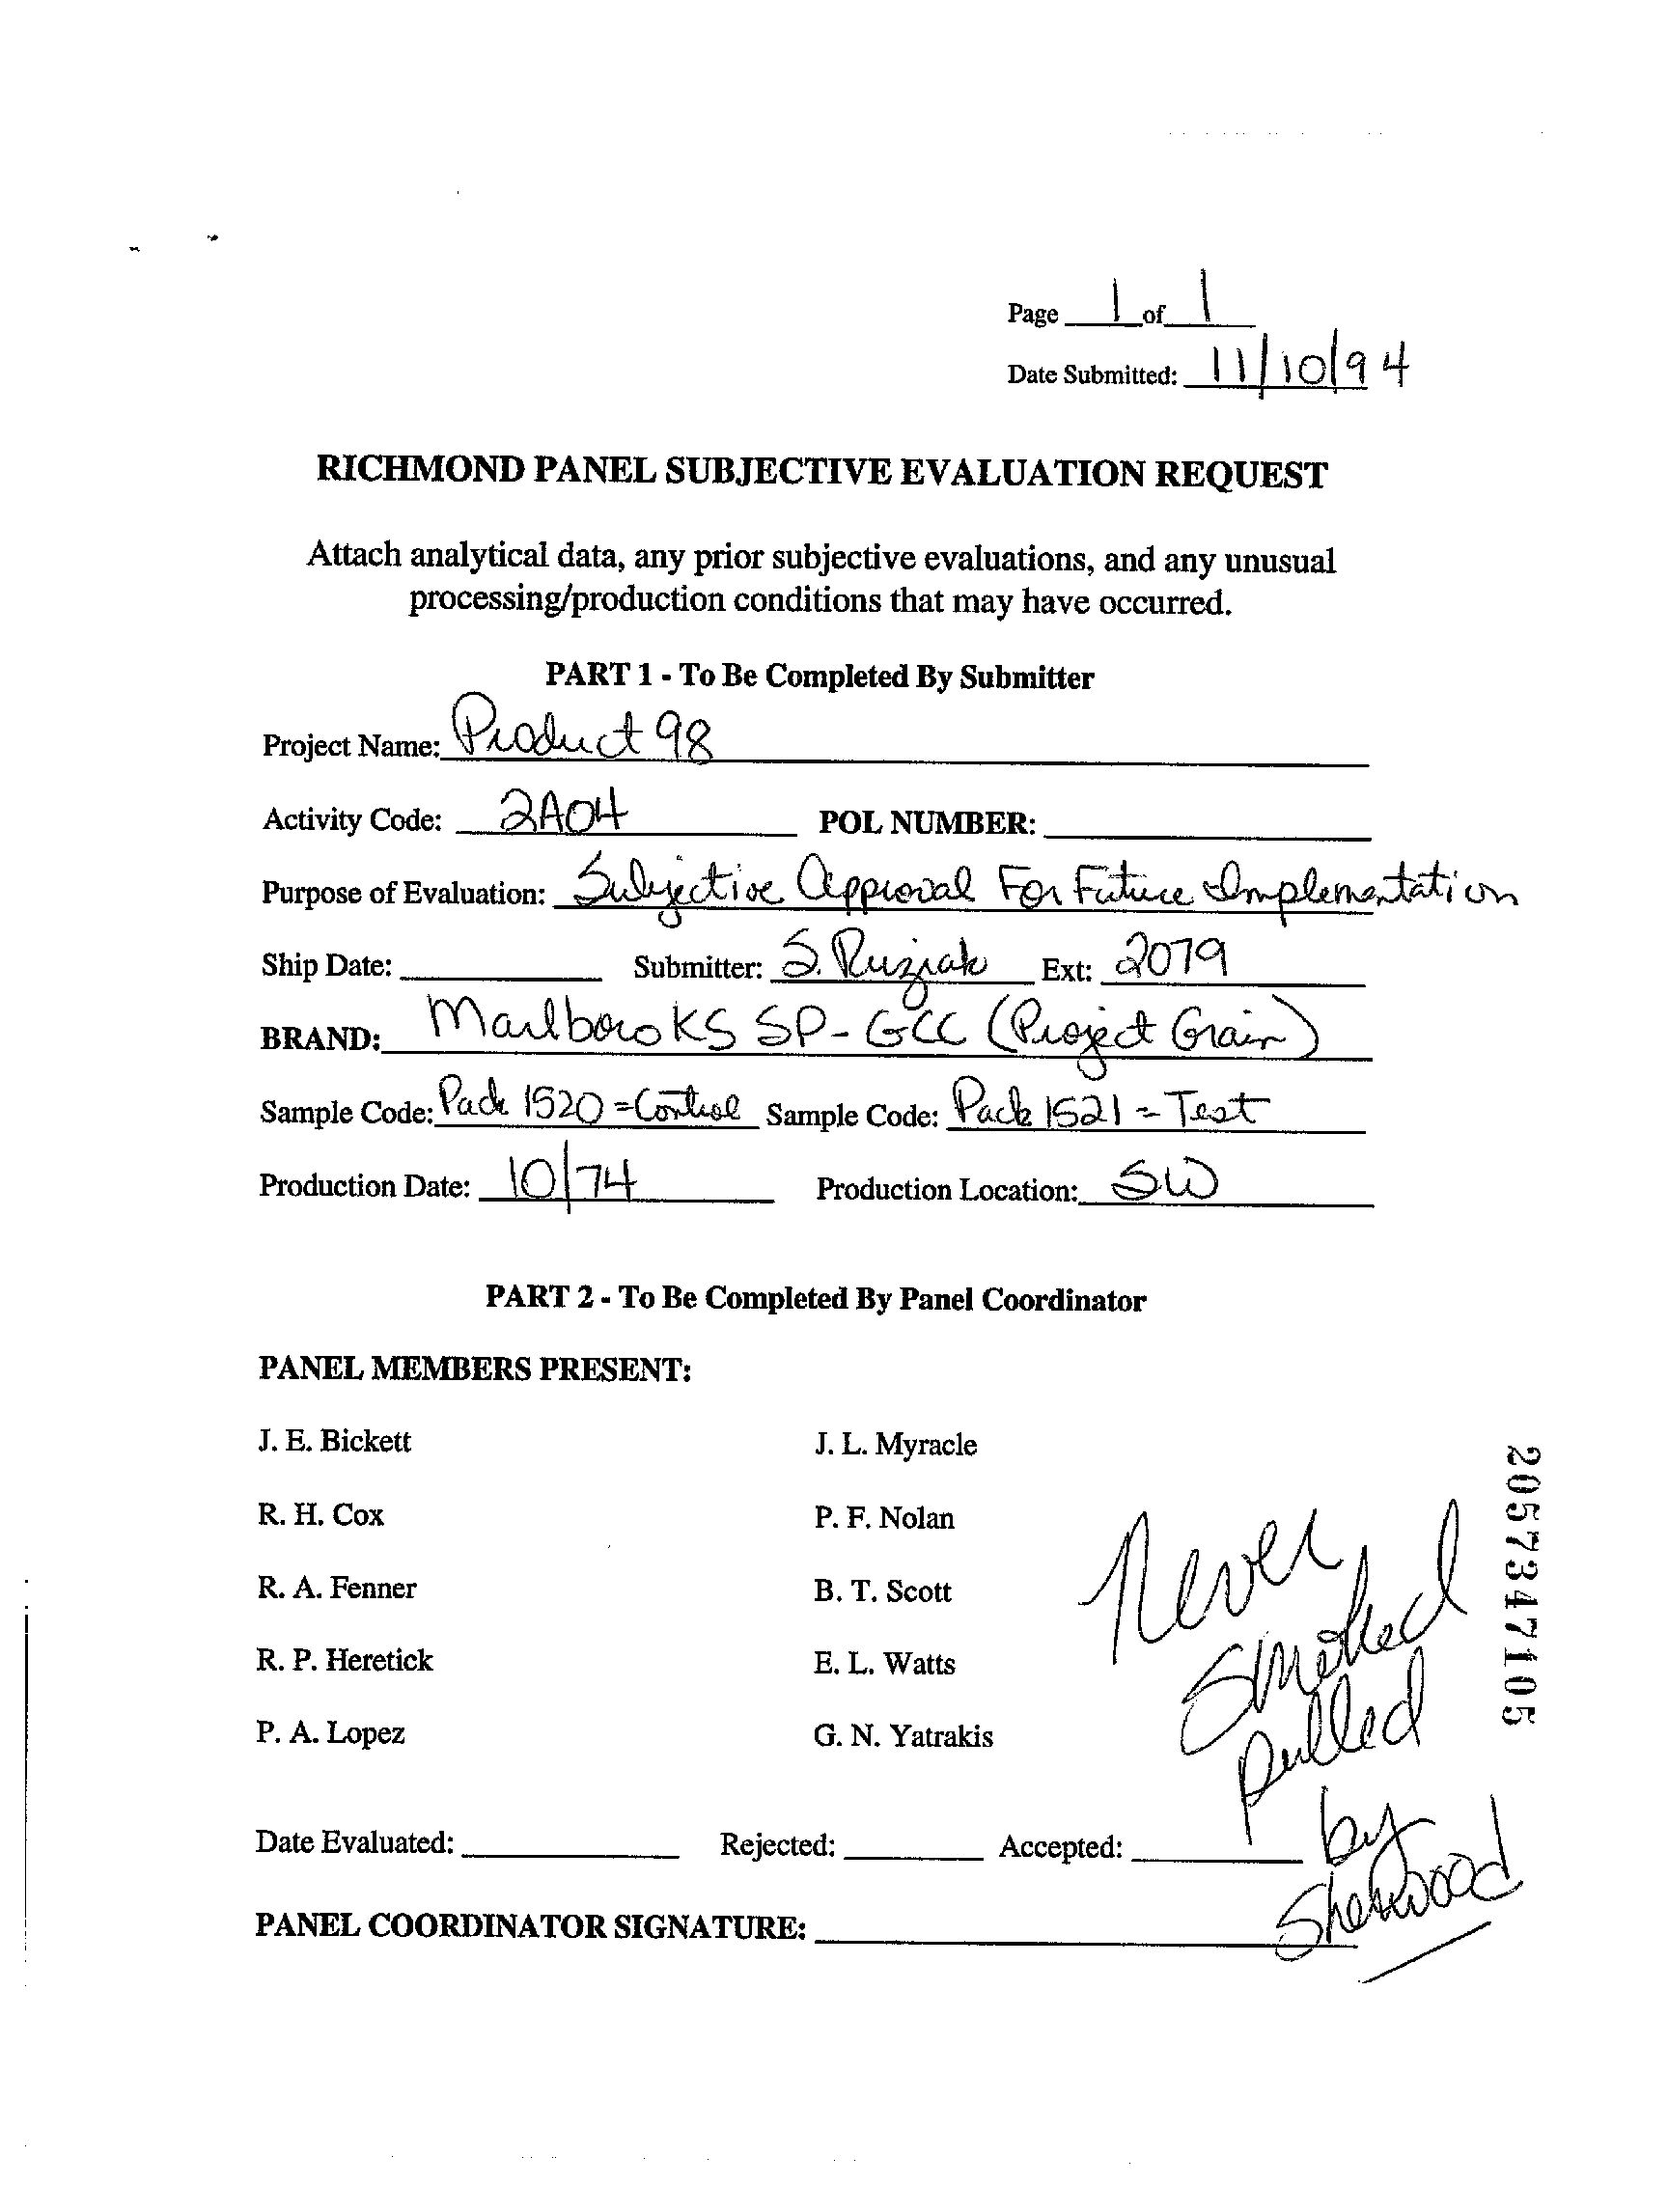 Page 1 of 1
Date Submitted: 11/10/94
RICHMOND PANEL SUBJECTIVE EVALUATION REQUEST
Attach analytical data, any prior subjective evaluations, and any unusual
processing/production conditions that may have occurred.
PART 1 - To Be Completed By Submitter
Project Name: Product 98
Activity Code: 2A04 POL NUMBER:
Purpose of Evaluation: Subjective Approval For Future Implementation
Ship Date: Submitter: S. Ruziak Ext: 2079
BRAND: Marlboro KS SP-GCC (Project Grain)
Sample Code: Pack 1520 = Control Sample Code: Pack 1521 = Test
Production Date: 10/74 Production Location: SW
PART 2 - To Be Completed By Panel Coordinator
PANEL MEMBERS PRESENT:
J. E. Bickett J. L. Myracle
R. H. Cox P. F. Nolan
R. A. Fenner B. T. Scott
R. P. Heretick E. L. Watts
P. A. Lopez G. N. Yatrakis
Never
Smoked
pulled
by
Sherwood
Date Evaluated: Rejected: Accepted:
PANEL COORDINATOR SIGNATURE:
2057347105